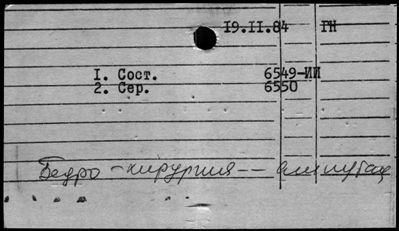 19.II.84 ГН
I. Сост. 6549-ИИ
2. Сер. 6550
Бедро - хирургия -- ампутац